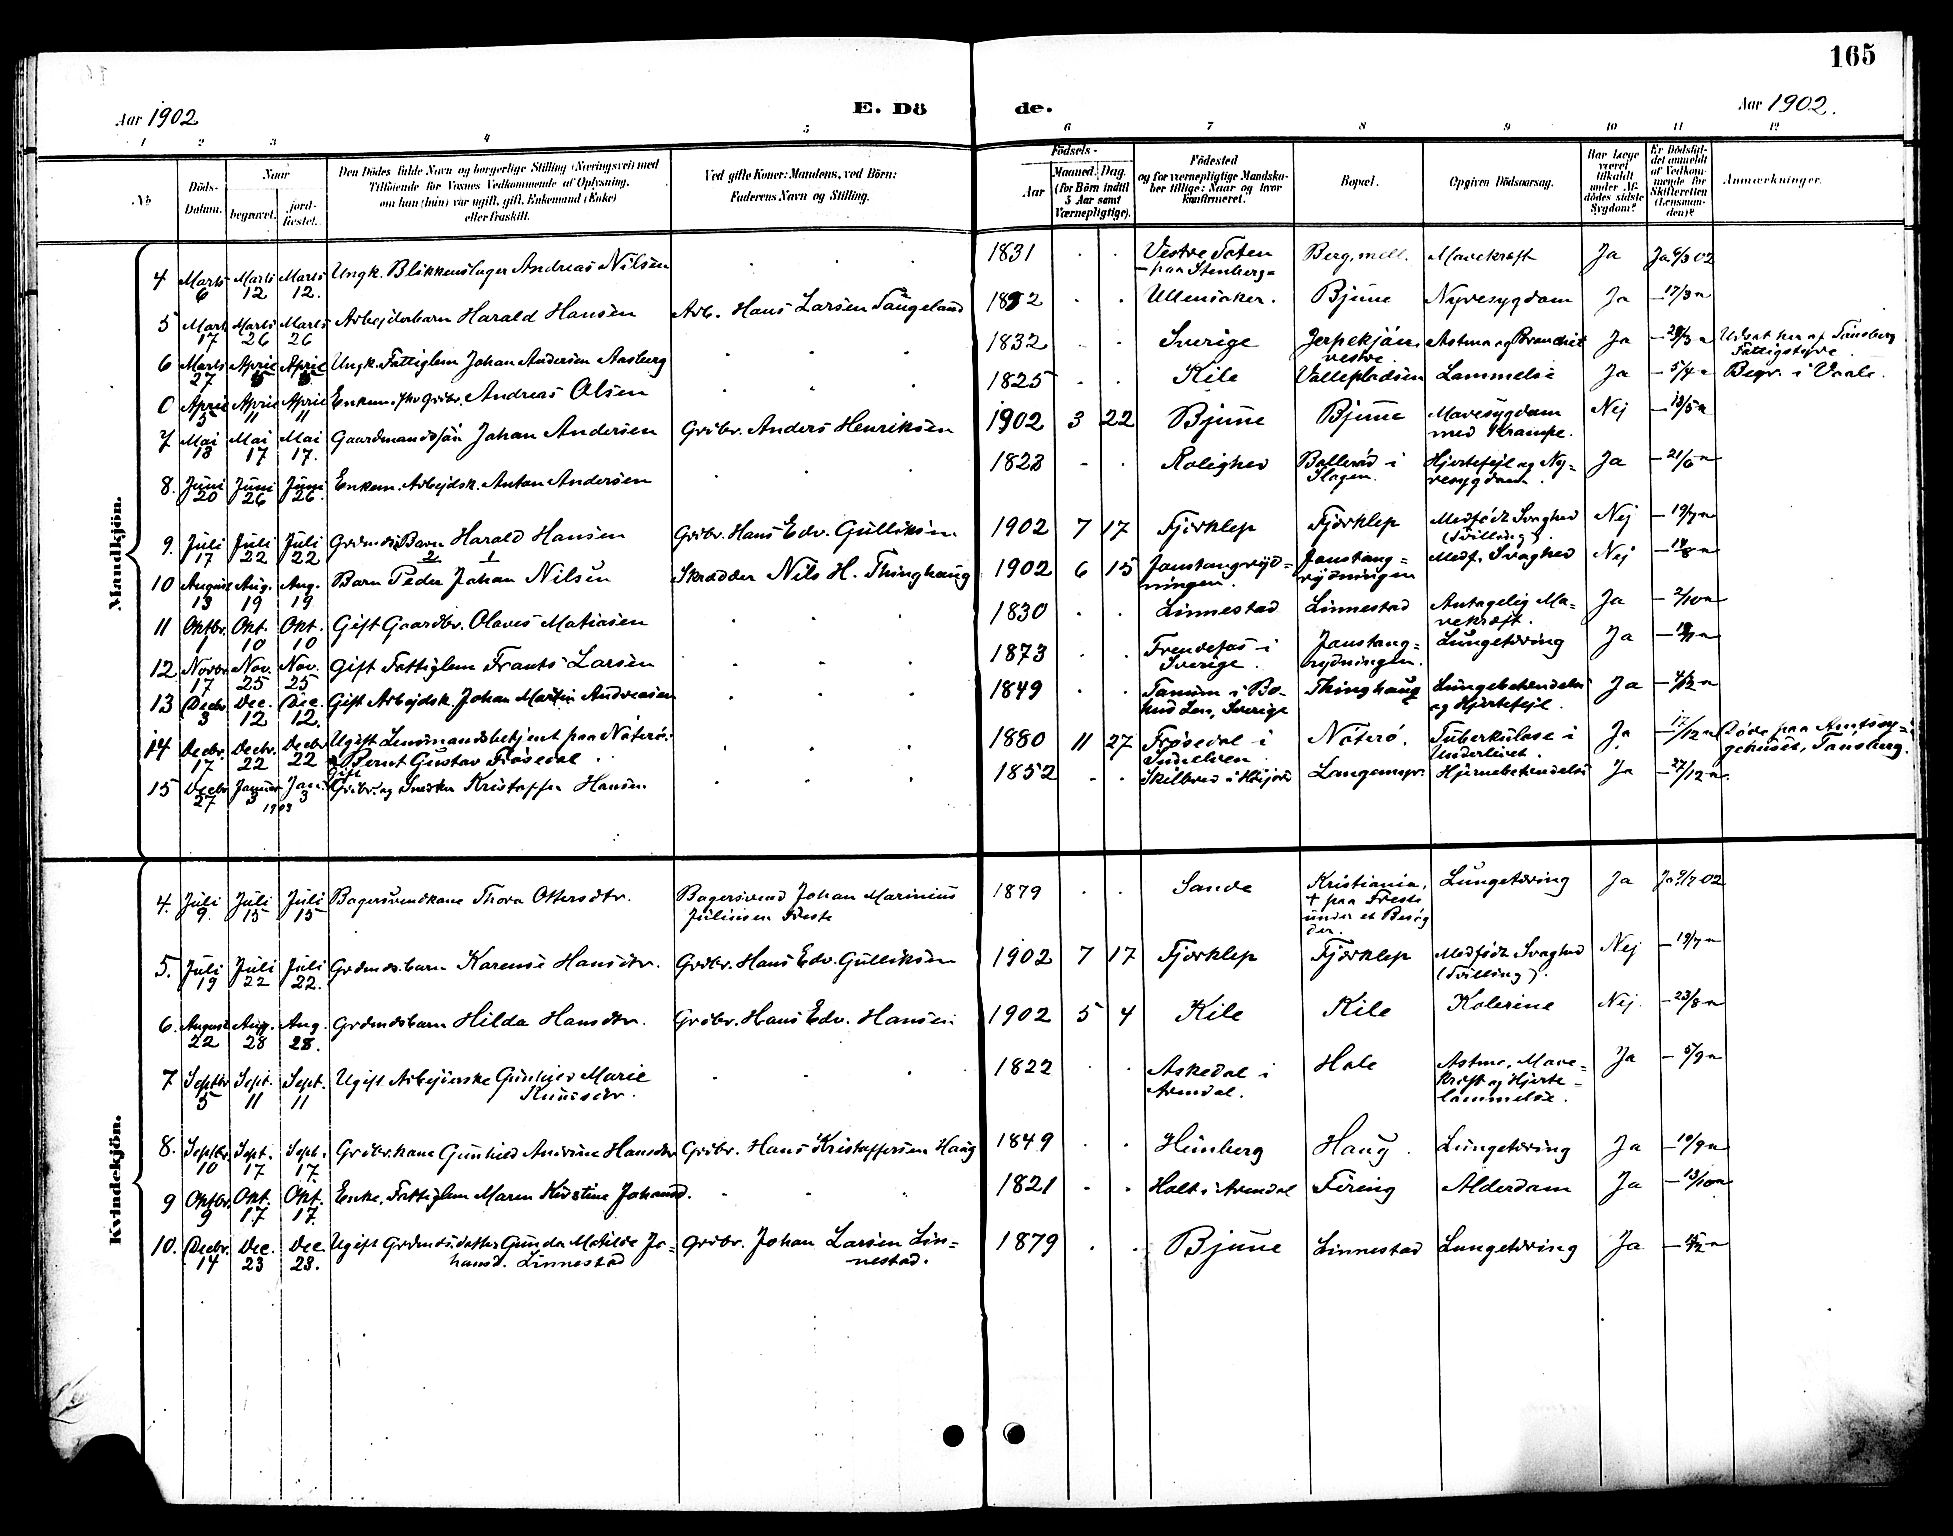 165
Aar 1902
E. Dö de.
Aar 1902.
1 2 3 4 5 6 7 8 9 10 11 12
No
Döds-Datum.
Naar
begravet.
jord-fæstet.
Den Dödes fulde Navn og borgerlige Stilling (Næringsvei) med
Tilföiende for Voxnes Vedkommende af Oplysning,
om han (hun) var ugift, gift, Enkemand (Enke)
eller fraskilt.
Ved gifte Koner: Mandens, ved Börn:
Faderens Navn og Stilling.
Födsels-
Aar
Maaned. Dag.
(for Börn indtil
5 Aar samt
Værnepligtige).
Födested
og for værnepligtige Mandskaber tillige: Naar og hvor
konfirmeret.
Bopæl.
Opgiven Dödsaarsag.
Har Læge
været
tilkaldt
under Afdödes sidste
Sygdom?
Er Dödsfaldet anmeldt
af Vedkommende for
Skifteretten
(Lensmanden)?
Anmærkninger.
Mandkjön.
4 Marts 6 Marts 12 Marts 12. Ungk. Blikkenslager Andreas Nilsen 1831 Vestre Toten paa Stenberg Berg, mell. Mavekræft Ja Ja 6/3 02
5 Marts 17 Marts 26 Marts 26 Arbejderbarn Harald Hansen Arb. Hans Larsen Taugeland Ullensaker. Bjune Nyresygdom Ja 17/3
6 Marts 27 April 5 April 5 Ungk. Fattiglem Johan Andersen Aasberg 1832 Sverige Jerpekjøn vestre Astma og Ja Udsat her af Tønsberg Fattigstyre.
0 April 5 April 11 April 11 Enkem. Andreas Olsen 1825 Kile Vallepladsen Lammelse Ja 5/4 Begr. i Vaale.
7 Mai 13 Mai 17 Mai 17. Gaardmandssøn Johan Andersen Grdbr. Anders Henriksen 1902 3 22 Bjune Bjune Mavesygdom med Krampe. Nej 13/5
8. Juni 20 Juni 26 Juni 26. Enkem. Arbejdsk. Anton Andersen 1823 Rolighed i Slagen. Hjertefejl og Nyresygdom. Ja 21/6
9. Juli 17 Juli 22 Juli 22 Grdmds. Barn Harald Hansen Grdbr. Hans Edv. Gulliksen 1902 7 17 Fjærklep Fjærklep Medfødt Svaghed (Tvilling). Nej 19/7
10 August 13 Aug. 19 Aug. 19 Barn Peder Johan Nilsen Skrædder Nils H. Thinghaug 1902 6 15 Jonstangrydningen. Jonstangrydningen Medf. Svaghed Nej
11 Oktbr. 1 Okt. 10 Okt. 10 Gift Gaardbr. Olaves Matiasen 1830 Linnestad Linnestad Antagelig Mavekræft. Ja 2/10
12 Novbr 17 Nov. 25 Nov. 25 Gift Fattiglem Frants Larsen 1873 i Sverige. Jonstangrydningen. Lungetæring Ja
13 Decbr 3 Dec. 12 Dec. 12. Gift Arbejdsk. Johan Martin Andreasen 1849 Tanum i Bohus Len, Sverige Thinghaug Lungebetændelse og Hjertefejl. Ja 4/12
14 Decbr. 17 Decbr. 22 Decbr 22 Ugift Lensmandsbetjent paa Nøterø. Bernt Gustav Frøsedal 1880 11 27 Frøsedal i Nøterø. Tuberkulose i Underlivet. Ja 17/12 Døde paa Amtssygehuset, Tønsberg.
15 Decbr 27 Januar 3 Jan. 3 1903 Gift Grdbr. og Snekker Kristoffer Hansen 1852 Skilbred i Hjernebetændelse Ja 27/12
Kvindekjön.
4. Juli 9. Juli 15 Juli 15 Bagersvendkone Thora Ottersdtr. Bagersvend Johan Marinius Juliusen Freste 1879 Sande Kristiania, + paa Freste under et Besøg der. Lungetæring Ja Ja 9/7 02
5. Juli 19 Juli 22 Juli 22. Grdmdsbarn Karense Hansdtr. Grdbr. Hans Edv. Gulliksen 1902 7 17 Fjærklep Fjærklep Medfødt Svaghed (Tvilling). Nej 19/7
6. August 22 Aug. 28 Aug. 28. Grdmdsbarn Hilda Hansdtr. Grdbr. Hans Edv. Hansen 1902 5 4 Kile Kile Kolerine Nej. 23/8
7 Septbr 5 Sept. 11 Sept. 11 Ugift Arbejderske Gunhild Marie Knudsdtr. 1822 Askedal i Arendal. Hole Astma, Mavekræft og Hjertelammelse. Ja 5/9
8. Septbr. 10 Sept. 17 Sept. 17. Grdbr.kone Gunhild Andrine Hansdtr Grdbr. Hans Kristoffersen Haug 1849 Heimberg Haug. Lungetæring Ja 10/9
9 Oktbr. 9 Okt. 17 Okt. 17. Enke, Fattiglem Maren Kirstine Johansd. 1821 Holt i Arendal Føring Alderdom Ja 13/10
10. Decbr. 14 Dec. 23 Dec. 23. Ugift Grdmds.datter Gunda Matilde Johansd. Linnestad Grdbr. Johan Larsen Linnestad. 1879 Bjune Linnestad Lungetæring Ja